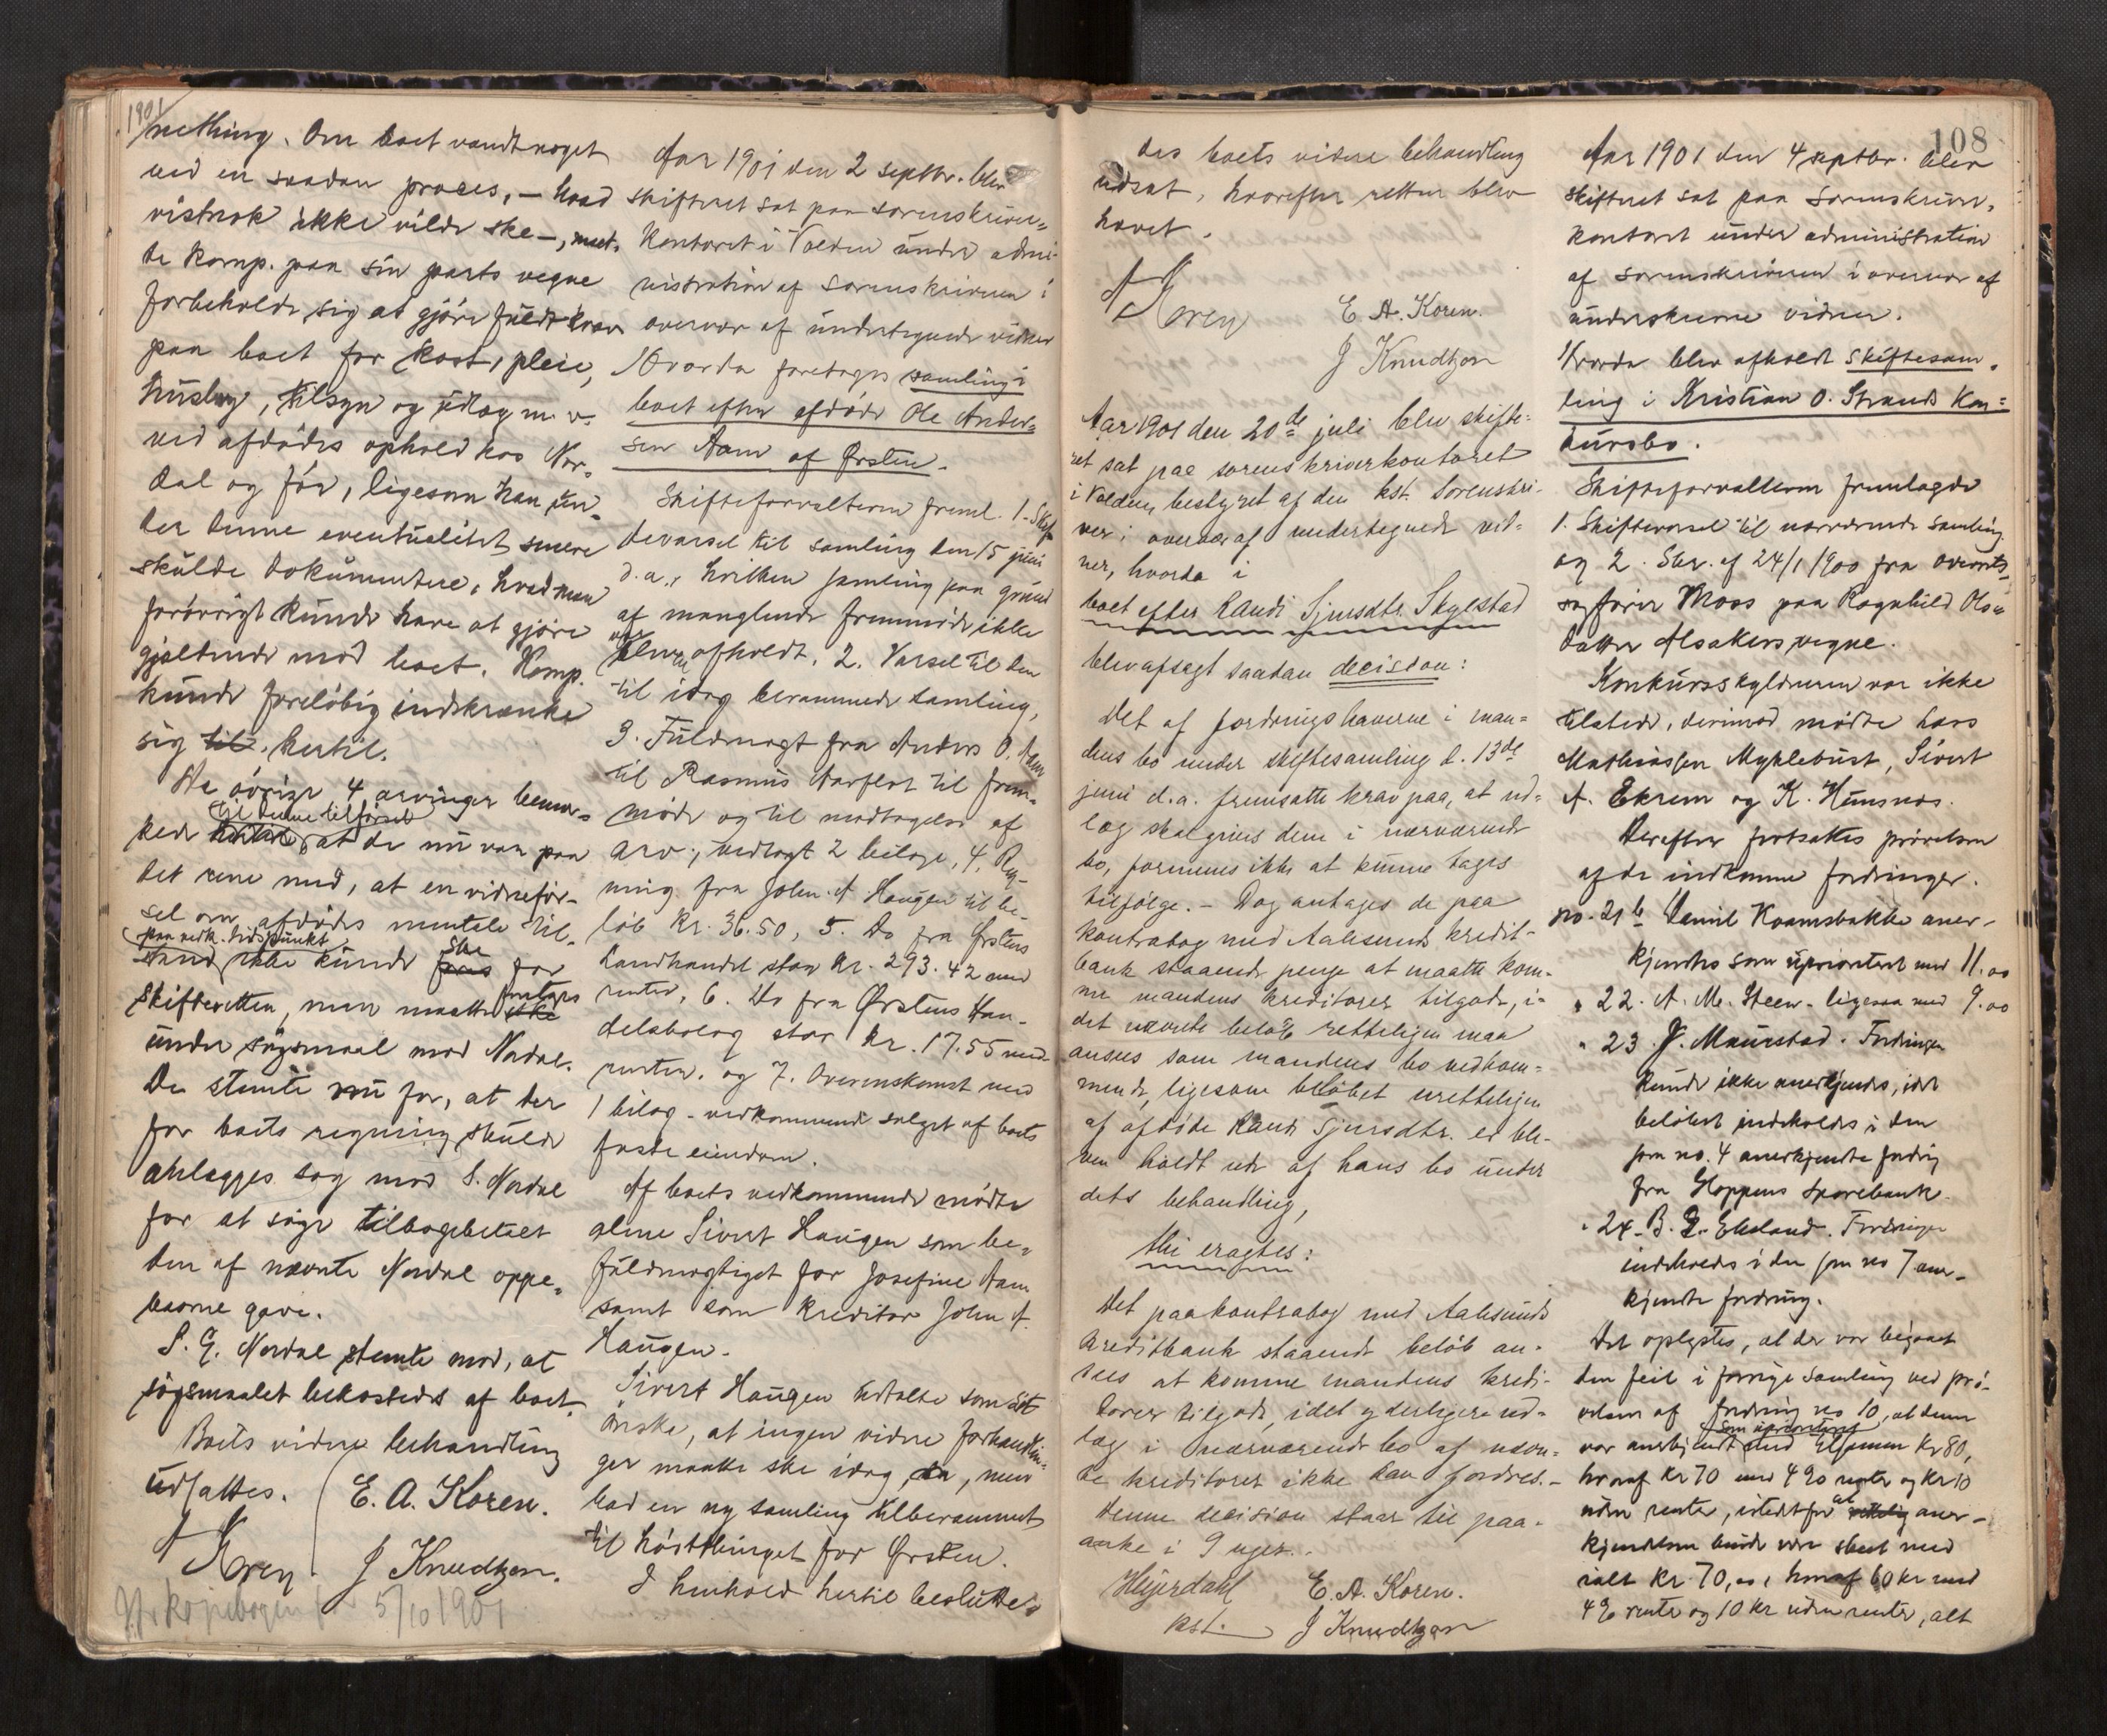 1901
nethning. Om boet vandt noget
ved en saadan proces, – hvad
vistnok ikke vilde ske –, maat-
te komp. paa sin parts vegne
forbeholde sig at gjöre fuldt krav
paa boet for kost, pleie,
husly, tilsyn og udlæg m. v.
ved afdödes ophold hos Nor-
dal og för, ligesom han un-
der denne eventualitet senere
skulde dokumentere, hvad man
forövrigt kunde have at gjöre
gjældende mod boet. Komp.
kunde foreløbig indskrænke
sig til hertil.
De övrige 4 arvinger bemær-
kede hertil til denne tilförsel, at de nu var paa
det rene med, at en vidneför-
sel om afdödes mentale til-
stand paa vedk. tidspunkt ikke kunde ske for
skifteretten, men maatte foretages
under sögsmaal mod Nordal.
De stemte nu for, at der
for boets regning skulde
anlægges sag mod S. Nordal
for at söge tilbagebetalt
den af nævnte Nordal oppe-
baarne gave.
S. G. Nordal stemte mod, at
sögsmaalet bekostedes af boet.
Boets videre behandling
udsattes.
E. A. Koren.
A Koren
J Knudtzon.
kopiebogen 5/10 1901
Aar 1901 den 2 septbr. blev
skifteret sat paa sorenskriver-
kontoret i Volden under admi-
nistration af sorenskriveren i
overvær af undertegnede vidner
Hvorda foretoges samling i
boet efter afdöde Ole Ander-
sen Aam af Ørsten.
Skifteforvalteren freml. 1. Skif-
tevarsel til samling den 15 juni
d. a., hvilken samling paa grund
af manglende fremmöde ikke
blev afholdt. 2. Varsel til den
til idag berammede samling,
3. Fuldmagt fra Anders O. Aam
til Rasmus Aarflot til frem-
möde og til modtagelse af
arv; vedlagt 2 bilage, 4. Reg-
ning fra John A. Haugen til be-
löb kr. 36.50, 5. Do fra Ørstens
Landhandel stor kr. 293.42 med
renter, 6. Do fra Ørstens Han-
delsbolag stor kr. 17.55 med
renter. og 7. Overenskomst med
1 bilag – vedkommende salget af boets
faste eiendom.
Af boets vedkommende mödte
alene Sivert Haugen som be-
fuldmægtiget for Josefine Aam
samt som kreditor John A.
Haugen.
Sivert Haugen udtalte som sit
önske, at ingen videre forhandlin-
ger maatte ske idag, men
bad en ny samling tilberammet
til hösttinget for Ørsten.
I henhold hertil besluttes
des boets videre behandling
udsat, hvorefter retten blev
hævet.
A Koren
E. A. Koren.
J Knudtzon
Aar 1901 den 20de juli blev skifte-
ret sat paa sorenskriverkontoret
i Volden, bestyret af den kst. sorenskri-
ver i overvær af undertegnede vid-
ner, hvorda i
boet efter Randi Sjursdtr. Skylstad
blev afsagt saadan decision:
Det af fordringshaverne i man-
dens bo under skiftesamling d. 13de
juni d. a. fremsatte krav paa, at ud-
læg skal gives dem i nærværende
bo, formenes ikke at kunne tages
tilfölge. – Dog antages de paa
kontrabog med Aalesunds kredit-
bank staaende penge at maatte kom-
me mandens kreditorer tilgode, i-
det nævnte belöb retteligen maa
ansees som mandens bo vedkom-
mende, ligesom belöbet uretteligen
af afdöde Randi Sjursdtr. er ble-
ven holdt ude af hans bo under
dets behandling,
thi eragtes:
Det paa kontrabog med Aalesunds
kreditbank staaende belöb an-
sees at komme mandens kredi-
torer tilgode, idet yderligere ud-
læg i nærværende bo af nævn-
te kreditorer ikke kan fordres. –
Denne decision staar til paa-
anke i 9 uger. –
Heyerdahl
kst.
E. A. Koren.
J Knudtzon
108
Aar 1901 den 4 septbr. blev
skifteret sat paa sorenskriver-
kontoret under administration
af sorenskriveren i overvær af
underskrevne vidner.
Hvorda blev afholdt skiftesam-
ling i Kristian O. Strands kon-
kursbo.
Skifteforvalteren fremlagde
1. Skiftevarsel til nærværende samling
og 2. Skr. af 24/1 1900 fra overrets-
sagförer Moos paa Ragnhild Ols-
datter Alsakers vegne.
Konkursskyldneren var ikke
tilstede, derimod mödte hans
Mathiassen Myklebust, Sivert
A. Ekrem og K. Humsnes.
Derefter fortsattes prövelsen
af de indkomne fordringer.
no. 21 b Daniel Kaamsbakke aner-
kjendtes som uprioritert med 11.00
" 22. A. M. Steen – ligesaa med 9.00
" 23 J. Maurstad. Fordringen
kunde ikke anerkjendes, idet
belöbet indeholdes i den
som no. 4 anerkjendte fordring
fra Gloppens sparebank.
" 24. B. L. Ekeland. Fordringen
indeholdes i den som no 7 aner-
kjendte fordring.
Det oplystes, at der var begaaet
den feil i forrige samling ved prö-
velsen af fordring no 10, at denne
var anerkjendt som uprioriteret med tilsammen kr 80,
hvoraf kr 70 med 4 % renter og kr 10
uden renter, istedetfor at aner-
kjendelsen burde være skeet med
ialt kr. 70,00, hvoraf 60 kr med
4 % rente og 10 kr uden renter, alt